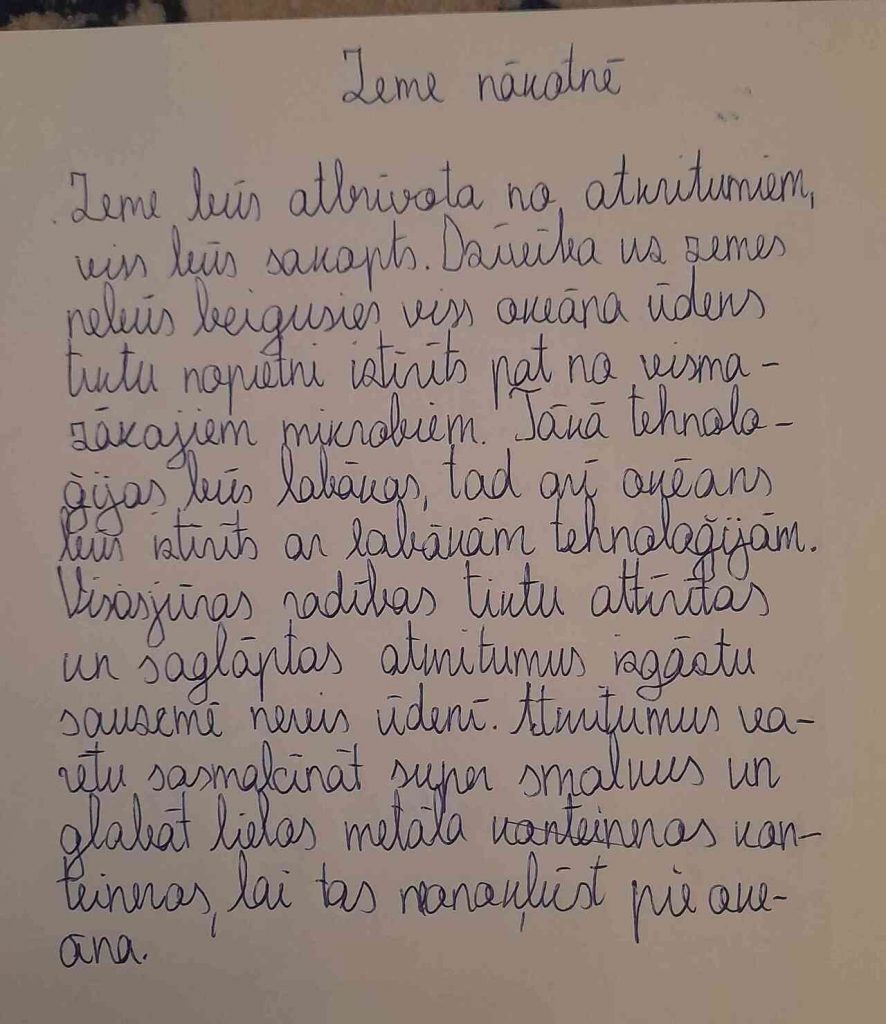 Zeme nākotnē
Zeme būs atbrīvota no atkritumiem,
viss būs sakopts. Dzīvība uz zemes
nebūs beigusies viss okeāna ūdens
tiktu nopietni iztīrīts pat no visma-
zākajiem mikrobiem. Tākā tehnolo-
ģijas būs labākas, tad arī okēans
būs iztīrīts ar labākām tehnoloģijām.
Visas jūras radības tiktu attīrītas
un saglāptas atkritumus izgāztu
sauszemē nevis ūdenī. Atkritumus va-
rētu sasmalcināt super smalkus un
glabāt lielos metāla konteineros kon-
teineros, lai tas nenokļūst pie oke-
āna.